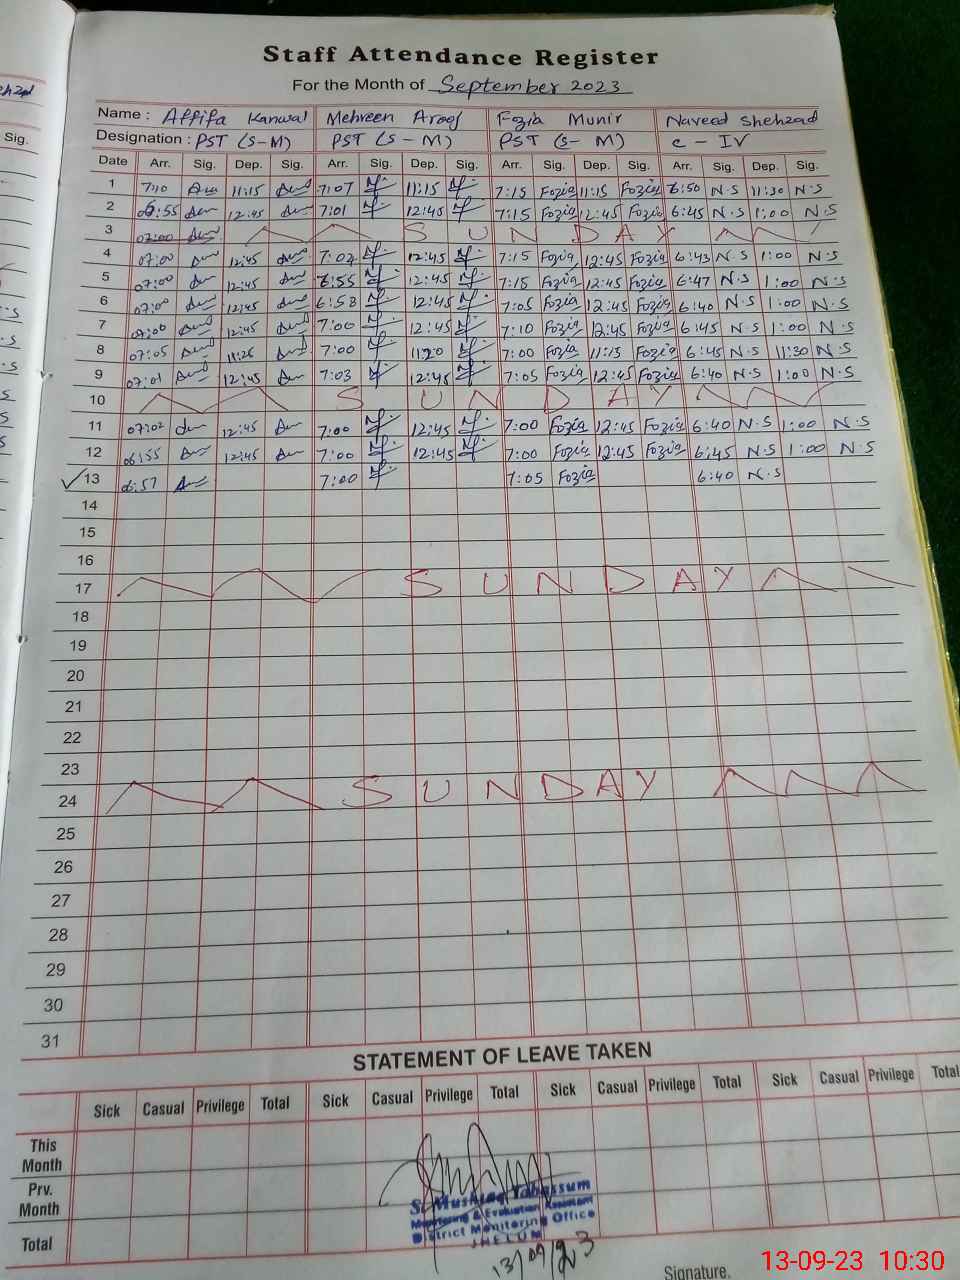 Staff Attendance Register
For the Month of September 2023
Name : Affifa Kanwal Mehreen Arooj Fozia Munir Naveed Shehzad
Designation : PST (S-M) PST (S-M) PST (S-M) C-IV
Date Arr. Sig. Dep. Sig. Arr. Sig. Dep. Sig. Arr. Sig. Dep. Sig. Arr. Sig. Dep. Sig.
1 7:10 11:15 7:07 11:15 7:15 Fozia 11:15 Fozia 6:50 N.S 11:30 N.S
2 06:55 12:45 7:01 12:45 7:15 Fozia 12:45 Fozia 6:45 N.S 1:00 N.S
3 07:00 SUNDAY
4 07:00 12:45 7:02 12:45 7:15 Fozia 12:45 Fozia 6:43 N.S 1:00 N.S
5 07:00 12:45 6:55 12:45 7:15 Fozia 12:45 Fozia 6:47 N.S 1:00 N.S
6 07:00 12:45 6:58 12:45 7:05 Fozia 12:45 Fozia 6:40 N.S 1:00 N.S
7 07:00 12:45 7:00 12:45 7:10 Fozia 12:45 Fozia 6:45 N.S 1:00 N.S
8 07:05 11:25 7:00 11:20 7:00 Fozia 11:15 Fozia 6:45 N.S 11:30 N.S
9 07:01 12:45 7:03 12:45 7:05 Fozia 12:45 Fozia 6:40 N.S 1:00 N.S
10 SUNDAY
11 07:02 12:45 7:00 12:45 7:00 Fozia 12:45 Fozia 6:40 N.S 1:00 N.S
12 06:55 12:45 7:00 12:45 7:00 Fozia 12:45 Fozia 6:45 N.S 1:00 N.S
13 06:57 7:00 7:05 Fozia 6:40 N.S
14
15
16
17 SUNDAY
18
19
20
21
22
23
24 SUNDAY
25
26
27
28
29
30
31
STATEMENT OF LEAVE TAKEN
Sick Casual Privilege Total Sick Casual Privilege Total Sick Casual Privilege Total Sick Casual Privilege Total
This Month
Prv. Month
Total
S. Mushtaq Tabassum
Monitoring & Evaluation Assistant
District Monitoring Office
JHELUM
13/09/23
Signature.
13-09-23 10:30